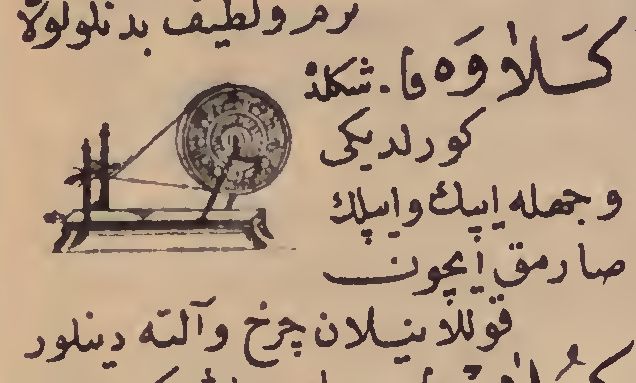 نرم ولطيف بدنلولولا
كَلَاوَه فا. شكلڈ
كورلديكى
وجهله ايپك وايپلك
صارمق ايچون
قوللانيلان چرخ وآلته دينلور